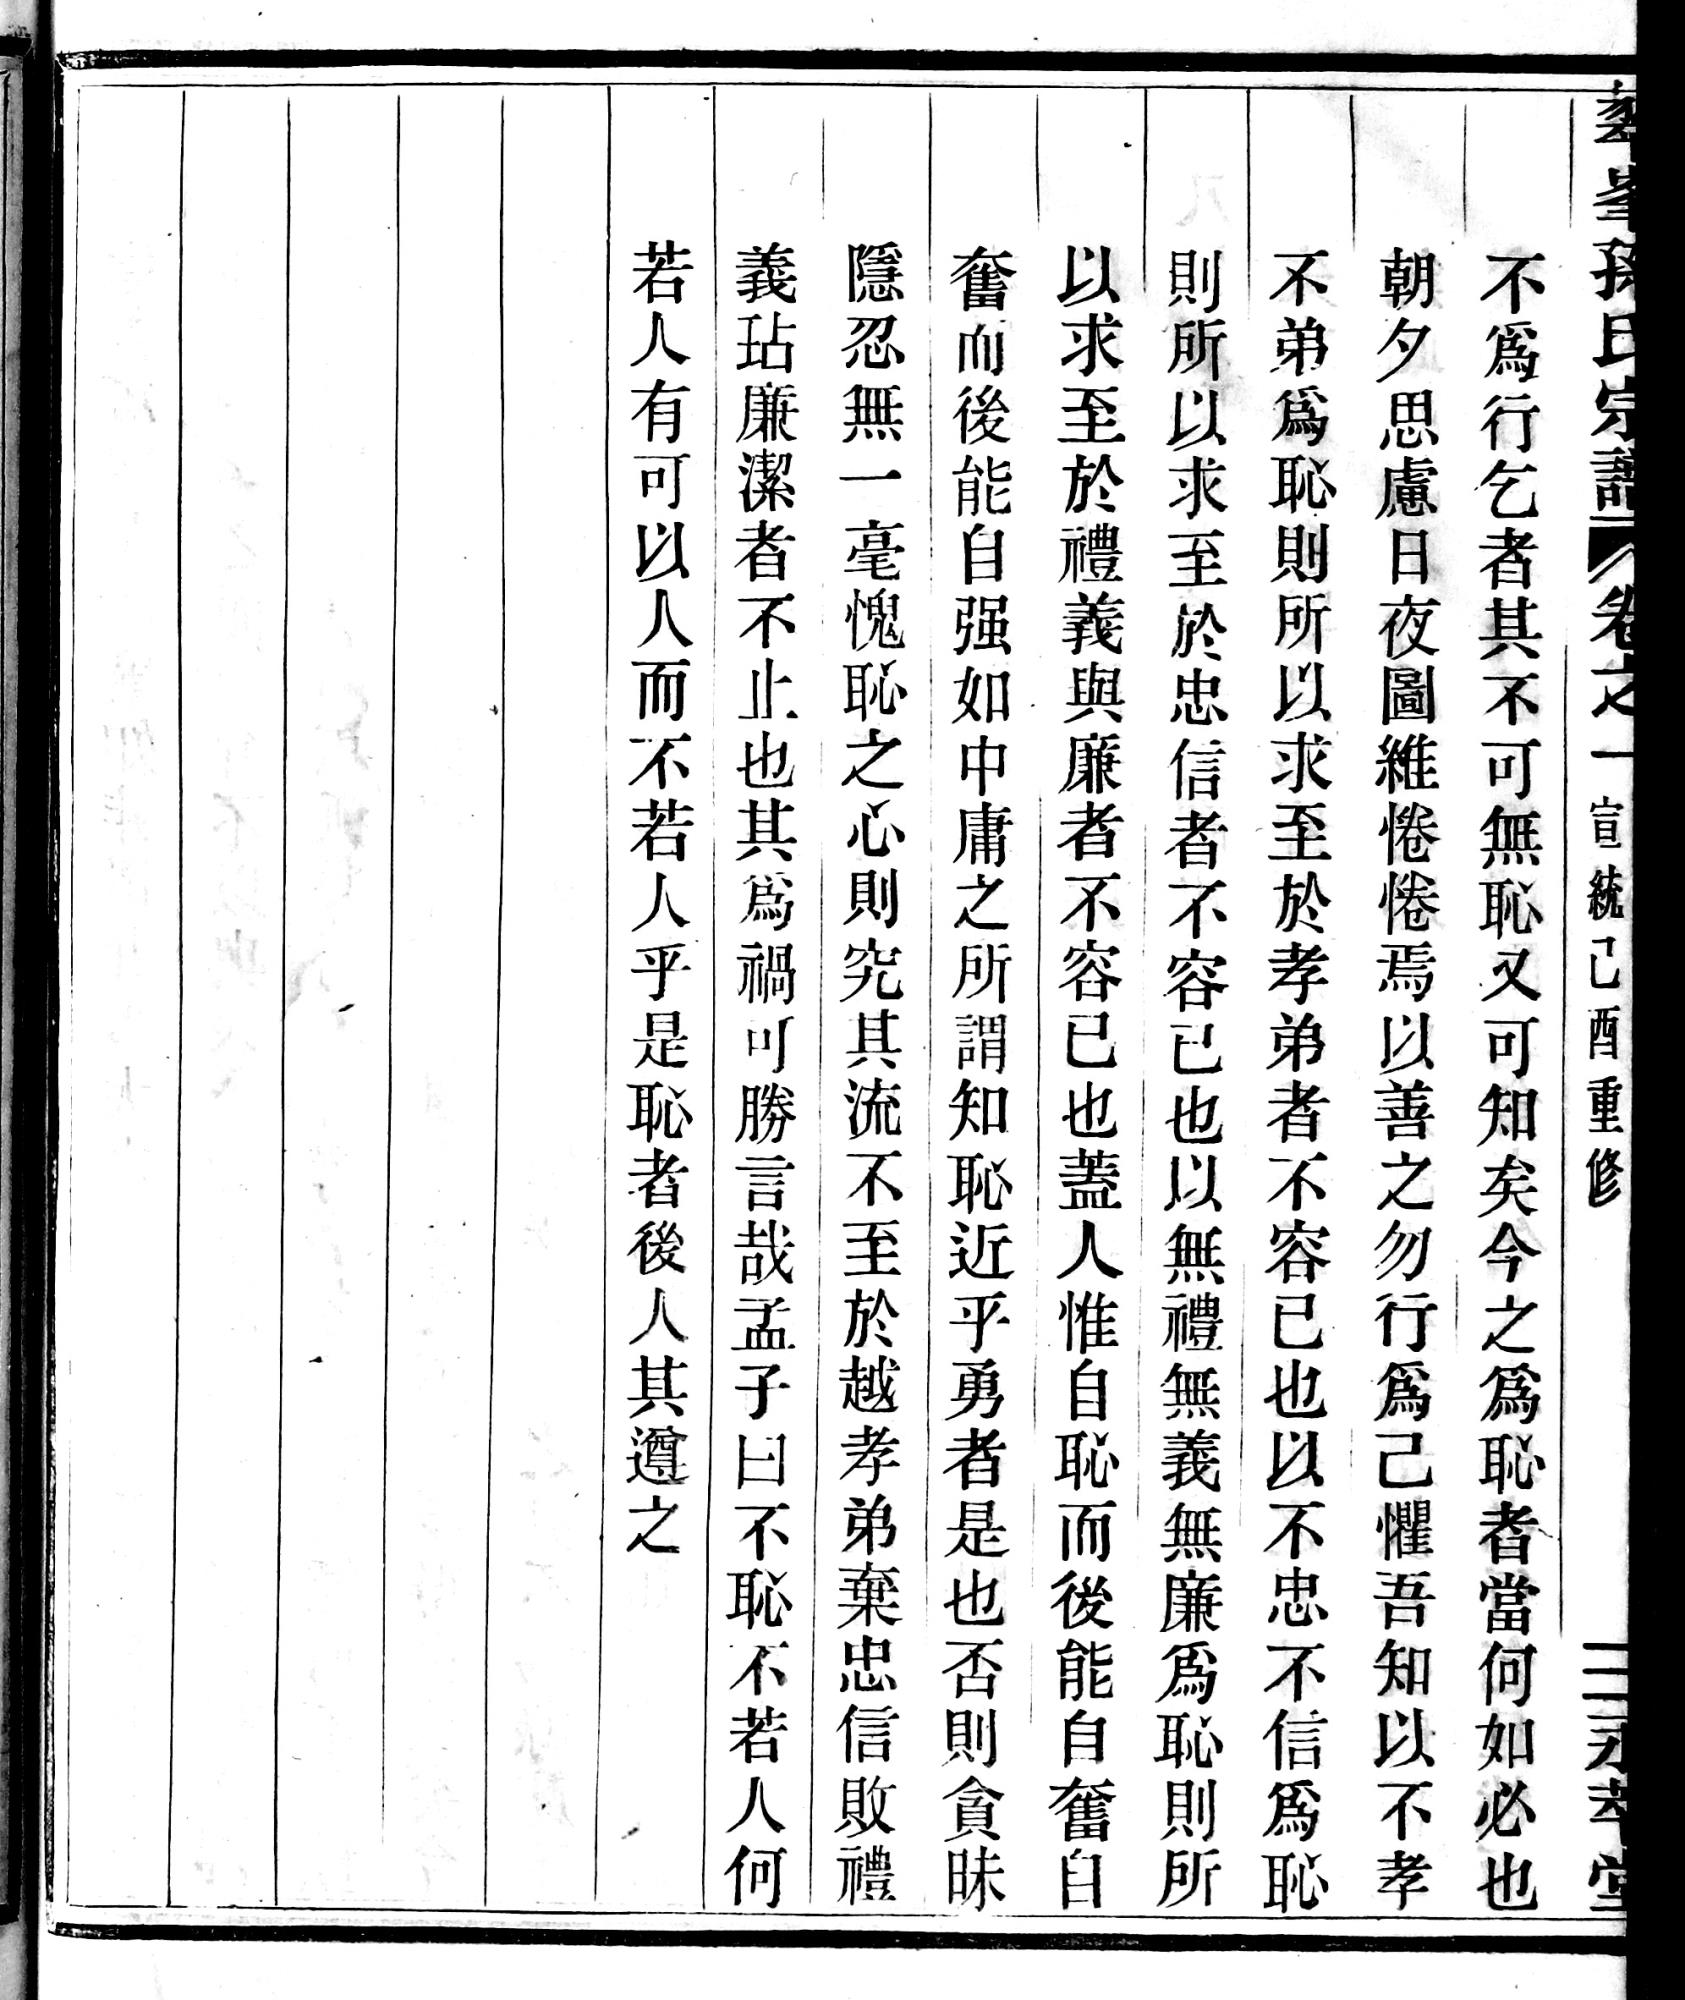 峯孫氏宗譜 卷之一 宣統己酉重修 二 堂
不爲行乞者其不可無恥又可知矣今之爲恥者當何如必也
朝夕思慮日夜圖維惓惓焉以善之勿行爲己懼吾知以不孝
不弟爲恥則所以求至於孝弟者不容已也以不忠不信爲恥
則所以求至於忠信者不容已也以無禮無義無廉爲恥則所
以求至於禮義與廉者不容已也蓋人惟自恥而後能自奮自
奮而後能自强如中庸之所謂知恥近乎勇者是也否則貪昧
隱忍無一毫愧恥之心則究其流不至於越孝弟棄忠信敗禮
義玷廉潔者不止也其爲禍可勝言哉孟子曰不恥不若人何
若人有可以人而不若人乎是恥者後人其遵之